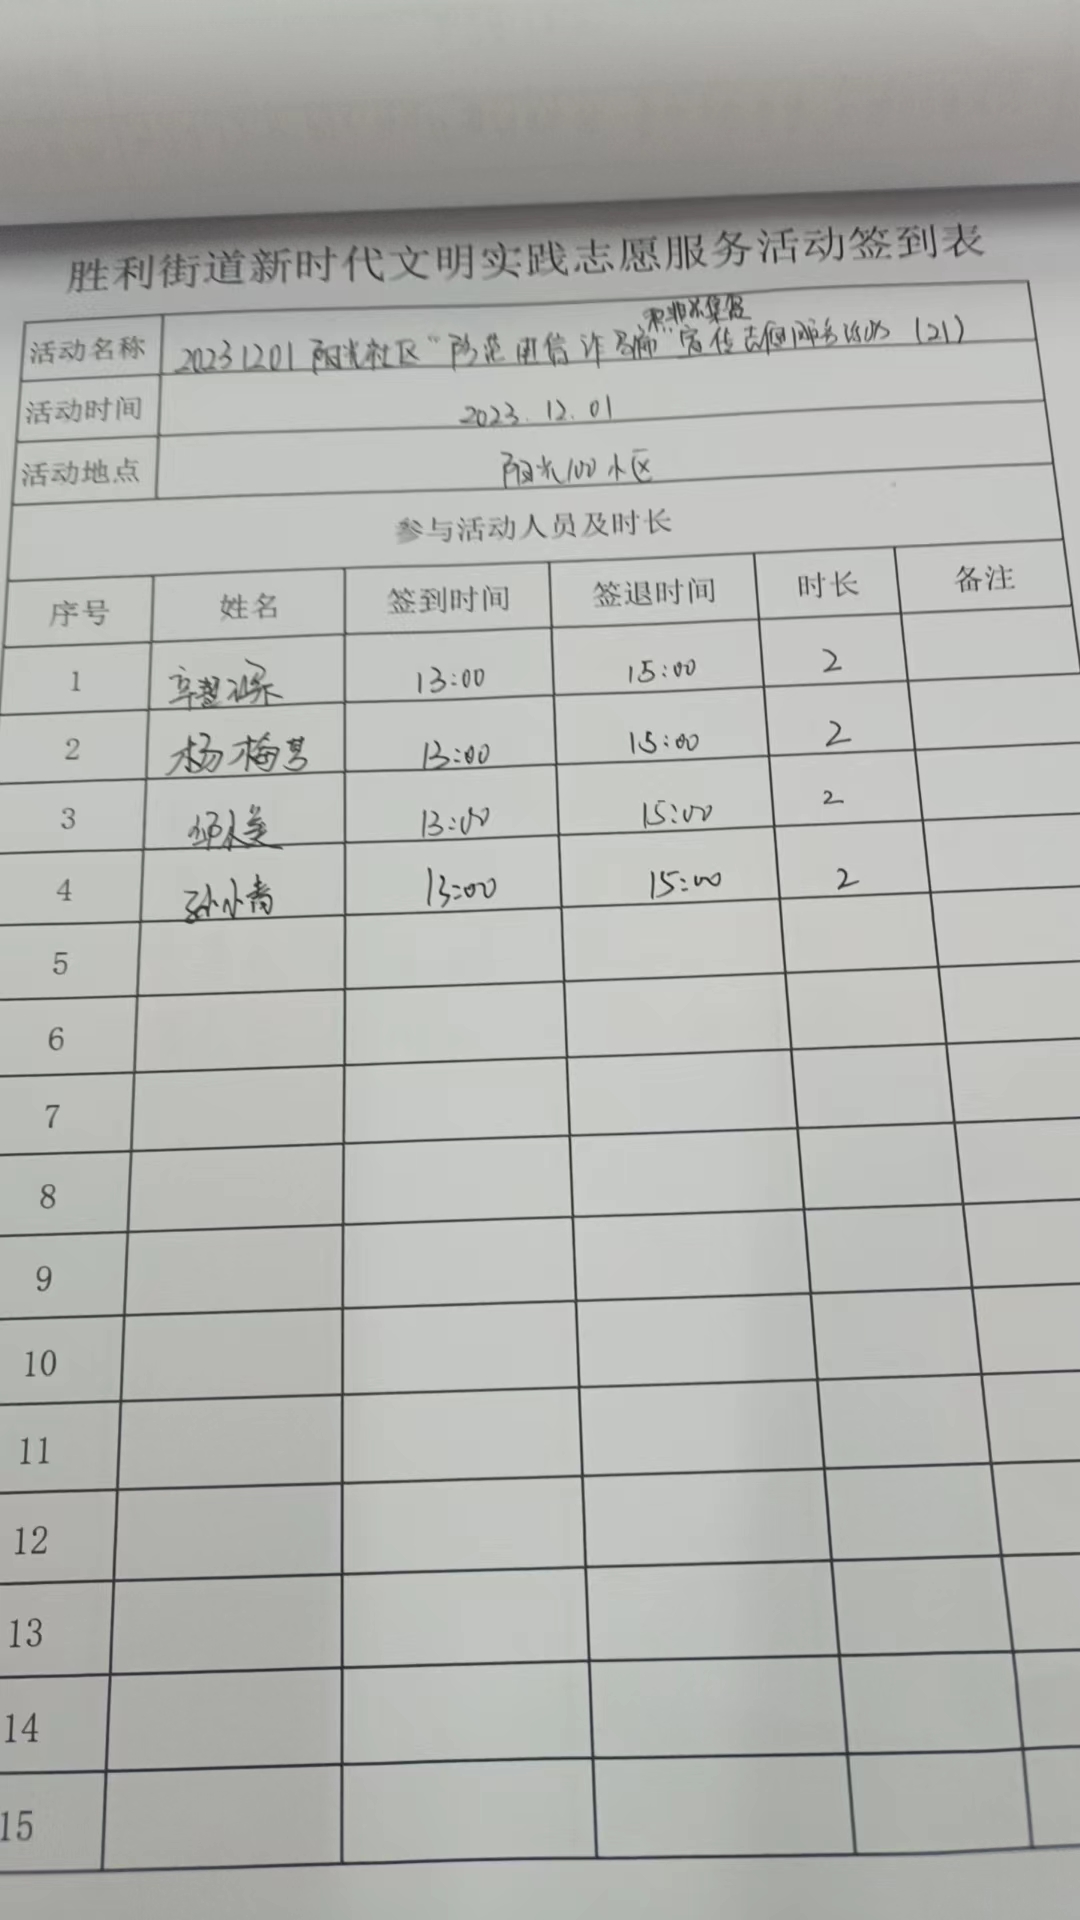 胜利街道新时代文明实践志愿服务活动签到表
活动名称 20231201阳光社区“防范电信诈骗”宣传志愿服务活动（21）
活动时间 2023.12.01
活动地点 阳光100小区
参与活动人员及时长
序号 姓名 签到时间 签退时间 时长 备注
1 13:00 15:00 2
2 杨梅 13:00 15:00 2
3 13:00 15:00 2
4 孙小青 13:00 15:00 2
5
6
7
8
9
10
11
12
13
14
15